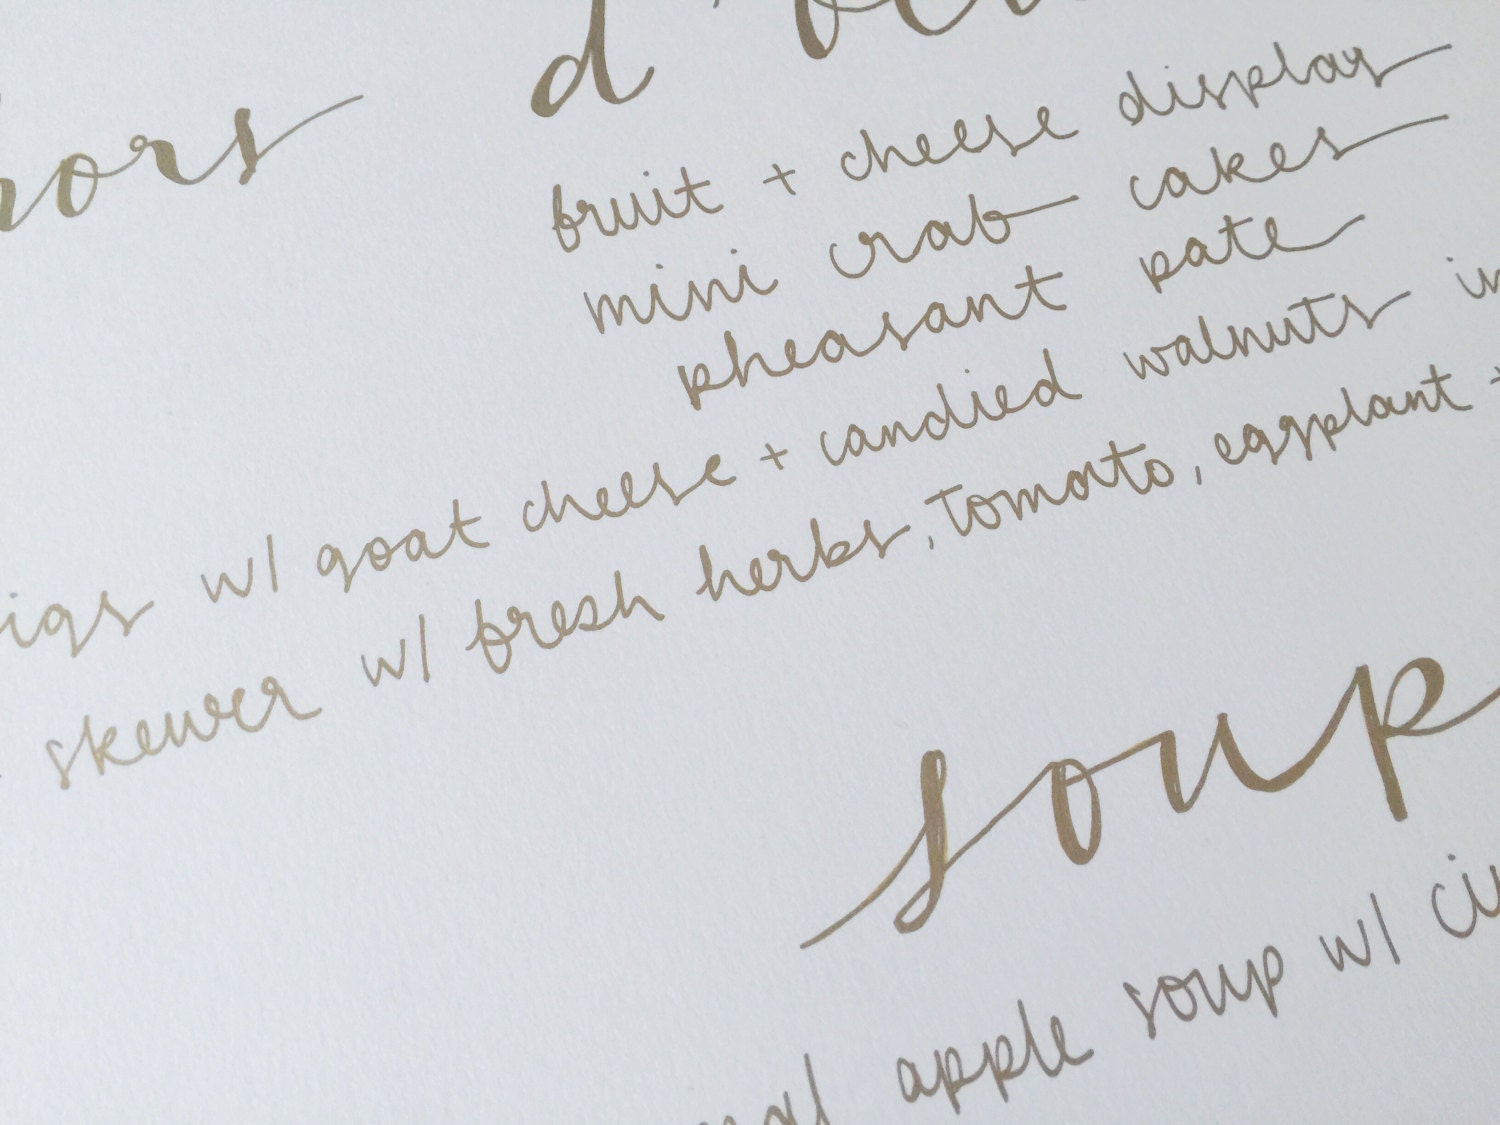 hors d'
fruit + cheese display
mini crab cakes
pheasant pate
w/ goat cheese + candied walnuts
skewer w/ fresh herbs, tomato, eggplant +
soup
apple soup w/